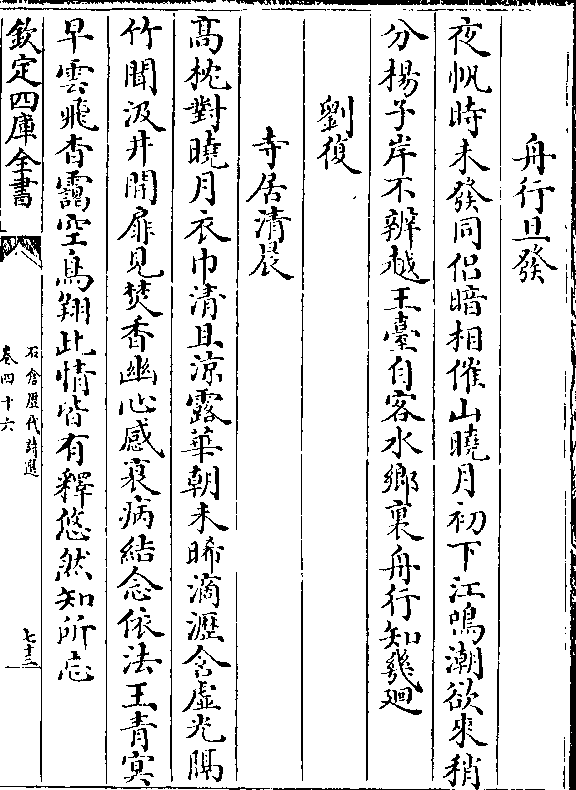 舟行旦發
夜帆時未發同侶暗相催山曉月初下江鳴潮欲來稍
分揚子岸不辨越王臺自客水鄉裏舟行知幾廻
劉復
寺居清晨
髙枕對曉月衣巾清且凉露華朝未晞滴瀝含虛光隔
竹聞汲井開扉見焚香幽心感衰病結念依法王青冥
早雲飛杳靄空鳥翔此情皆有釋悠然知所忘
欽定四庫全書
石倉歷代詩選
卷四十六
七十三